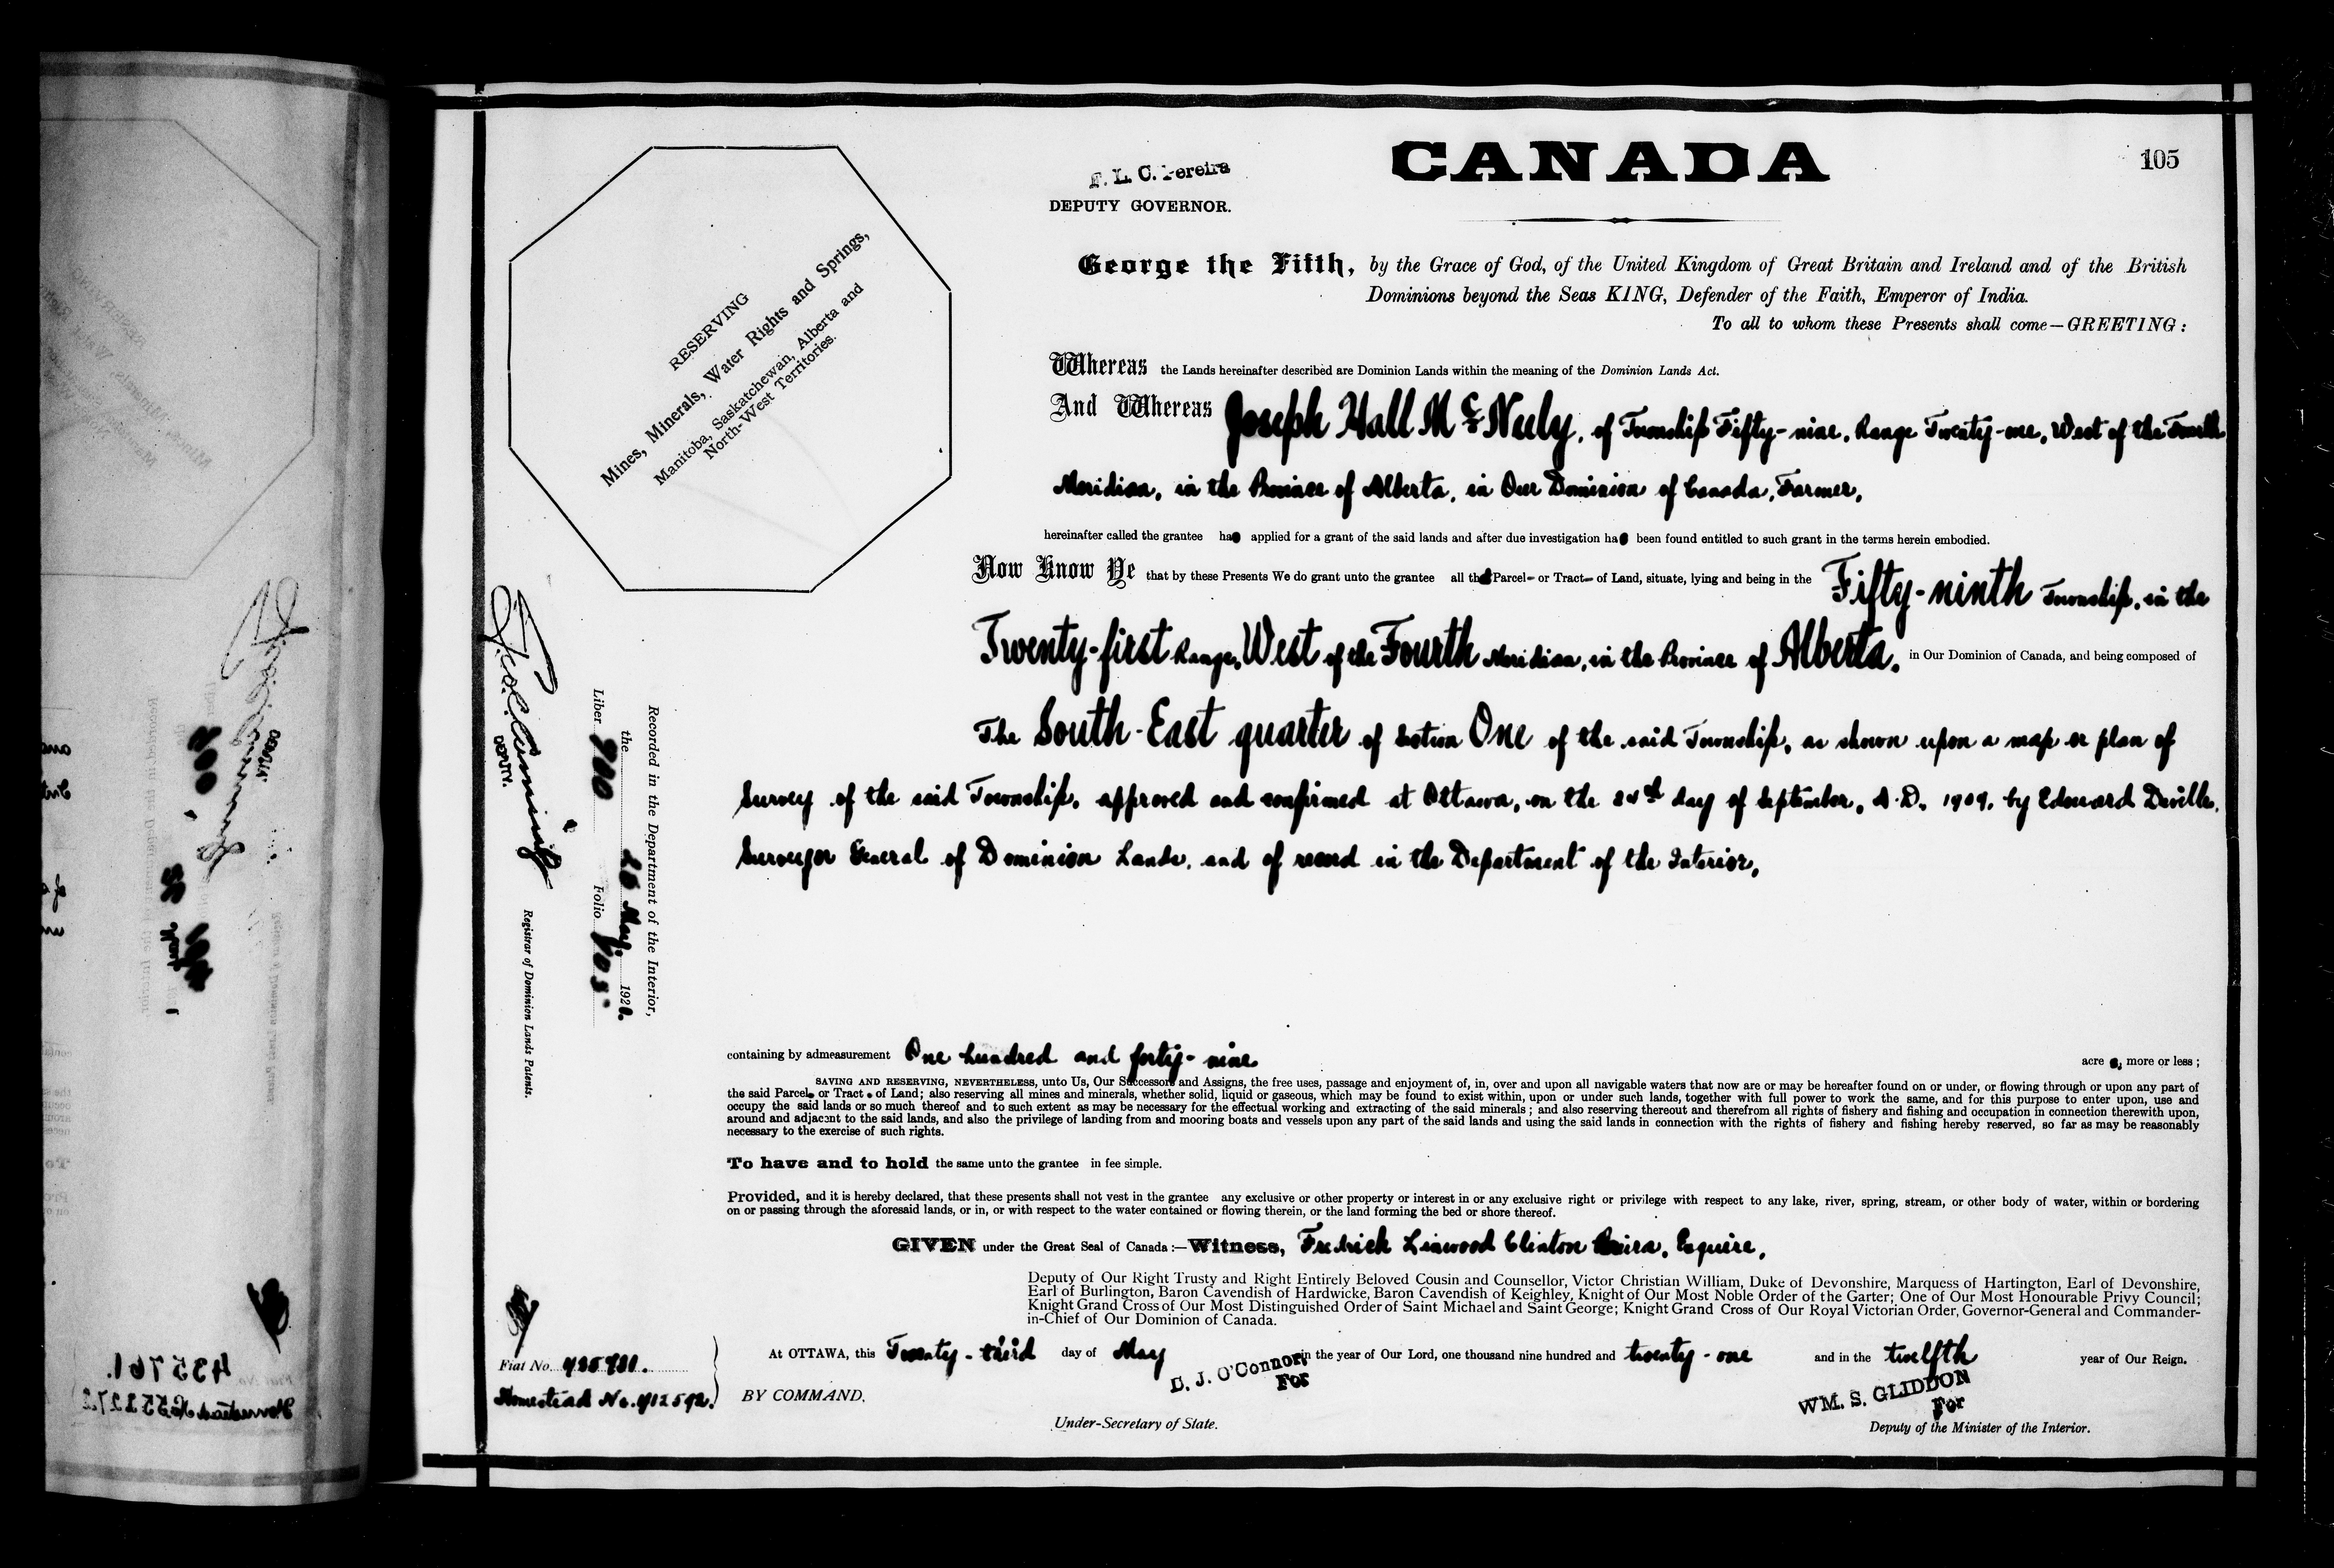 CANADA
105
F. L. C. Pereira
DEPUTY GOVERNOR.
RESERVING
Mines, Minerals, Water Rights and Springs,
Manitoba, Saskatchewan, Alberta and
North-West Territories.
George the Fifth, by the Grace of God, of the United Kingdom of Great Britain and Ireland and of the British
Dominions beyond the Seas KING, Defender of the Faith, Emperor of India.
To all to whom these Presents shall come—GREETING:
Whereas the Lands hereinafter described are Dominion Lands within the meaning of the Dominion Lands Act.
And Whereas Joseph Hall McNeely, of Township Fifty-nine, Range Twenty-one, West of the Fourth
Meridian, in the Province of Alberta, in Our Dominion of Canada, Farmer,
hereinafter called the grantee has applied for a grant of the said lands and after due investigation has been found entitled to such grant in the terms herein embodied.
Now Know Ye that by these Presents We do grant unto the grantee all that Parcel or Tract of Land, situate, lying and being in the Fifty-ninth Township, in the
Twenty-first Range, West of the Fourth Meridian, in the Province of Alberta, in Our Dominion of Canada, and being composed of
The South-East quarter of Section One of the said Township, as shown upon a map or plan of
Survey of the said Township, approved and confirmed at Ottawa, on the day of September, A.D. 1909, by Edouard Deville,
Surveyor General of Dominion Lands, and of record in the Department of the Interior,
containing by admeasurement One hundred and forty-nine acres, more or less;
SAVING AND RESERVING, NEVERTHELESS, unto Us, Our Successors and Assigns, the free uses, passage and enjoyment of, in, over and upon all navigable waters that now are or may be hereafter found on or under, or flowing through or upon any part of
the said Parcel or Tract of Land; also reserving all mines and minerals, whether solid, liquid or gaseous, which may be found to exist within, upon or under such lands, together with full power to work the same, and for this purpose to enter upon, use and
occupy the said lands or so much thereof and to such extent as may be necessary for the effectual working and extracting of the said minerals; and also reserving thereout and therefrom all rights of fishery and fishing and occupation in connection therewith upon,
around and adjacent to the said lands, and also the privilege of landing from and mooring boats and vessels upon any part of the said lands and using the said lands in connection with the rights of fishery and fishing hereby reserved, so far as may be reasonably
necessary to the exercise of such rights.
To have and to hold the same unto the grantee in fee simple.
Provided, and it is hereby declared, that these presents shall not vest in the grantee any exclusive or other property or interest in or any exclusive right or privilege with respect to any lake, river, spring, stream, or other body of water, within or bordering
on or passing through the aforesaid lands, or in, or with respect to the water contained or flowing therein, or the land forming the bed or shore thereof.
GIVEN under the Great Seal of Canada:—Witness, Fredrick Linwood Clinton Pereira, Esquire,
Deputy of Our Right Trusty and Right Entirely Beloved Cousin and Counsellor, Victor Christian William, Duke of Devonshire, Marquess of Hartington, Earl of Devonshire,
Earl of Burlington, Baron Cavendish of Hardwicke, Baron Cavendish of Keighley, Knight of Our Most Noble Order of the Garter; One of Our Most Honourable Privy Council;
Knight Grand Cross of Our Most Distinguished Order of Saint Michael and Saint George; Knight Grand Cross of Our Royal Victorian Order, Governor-General and Commander-
in-Chief of Our Dominion of Canada.
At OTTAWA, this Twenty-third day of May in the year of Our Lord, one thousand nine hundred and twenty-one and in the twelfth year of Our Reign.
BY COMMAND.
D. J. O'Connor
For
Under-Secretary of State.
WM. S. GLIDDON
For
Deputy of the Minister of the Interior.
Recorded in the Department of the Interior,
the 26 May 192
Liber Folio 105
DEPUTY.
Registrar of Dominion Lands Patents.
Fiat No.
Homestead No.
435761.